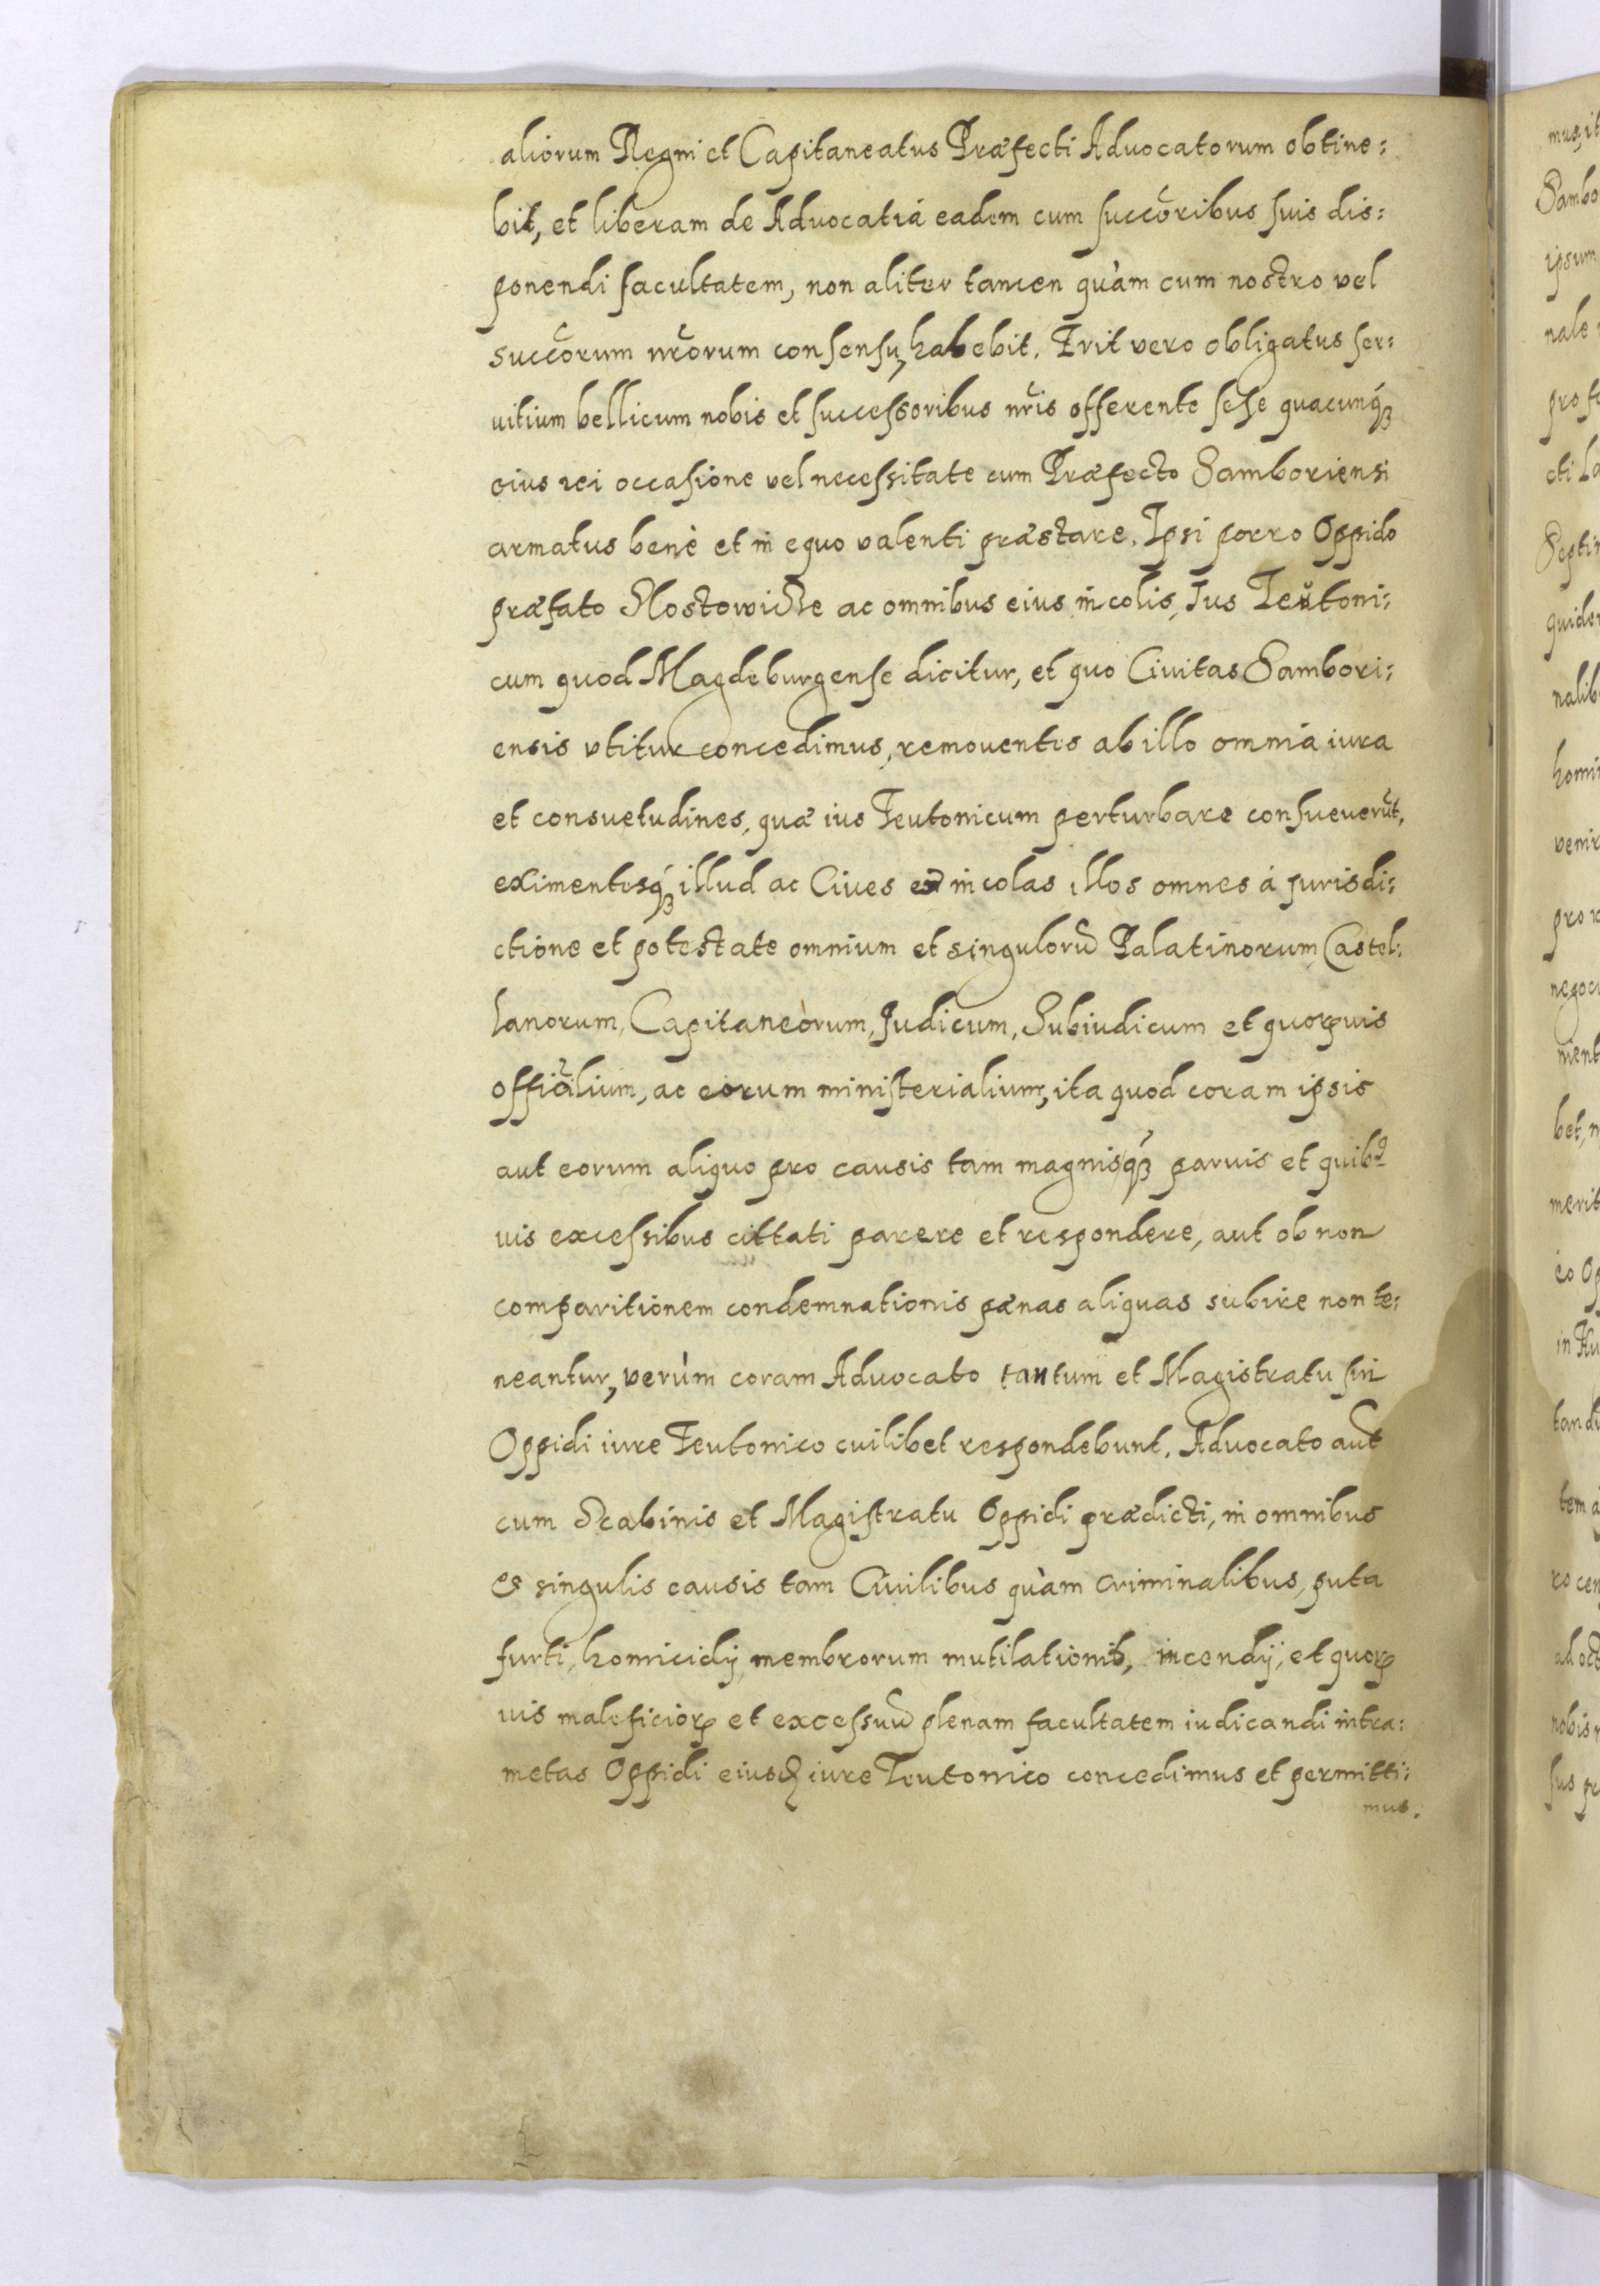 aliorum Regni et Capitaneatus Præfecti Advocatorum obtine:
bit, et liberam de Advocatiá eadem cum succõribus suis dis:
ponendi facultatem, non aliter tamen quàm cum nostro vel
succõrum nrõrum consensu, habebit. Erit vero obligatus ser:
uitium bellicum nobis et successoribus nr̃is offerente sese quacunq́ꝫ
eius rei occasione vel necessitate cum Præfecto Samboriensi
armatus benè et in equo valenti præstare. Ipsi porro Oppido
præfato ac omnibus eius incolis, Ius Teutoni:
cum quod Magdeburgense dicitur, et quo Ciuitas Sambori:
ensis vtitur concedimus, remouentes ab illo omnia iura
et consuetudines, quæ ius Teutonicum perturbare consueuerũt,
eximentesq́ꝫ illud ac Ciues et incolas illos omnes á jurisdi:
ctione et potestate omnium et singulorũ Palatinorum, Castel:
lanorum, Capitaneòrum, Judicum, Subiudicum et quorꝝuis
officialium, ac eorum ministerialium, ita quod coram ipsis
aut eorum aliquo pro causis tam magnis q́ꝫ paruis et quibꝰ
uis excessibus cittati parere et respondere, aut ob non
comparitionem condemnationis pænas aliquas subire non te:
neantur, verùm coram Advocato tantum et Magistratu sui
Oppidi iure Teutonico cuilibet respondebunt. Advocato aũt
cum Scabinis et Magistratu Oppidi prædicti, in omnibus
et singulis causis tam Ciuilibus quàm Criminalibus, puta
furti, homicidij, membrorum mutilationis, incendij, et quorꝝ
uis maleficiorꝝ et excessuũ plenam facultatem iudicandi intra:
metas Oppidi eiusdꝫ iure Teutonico concedimus et permitti:
mus.